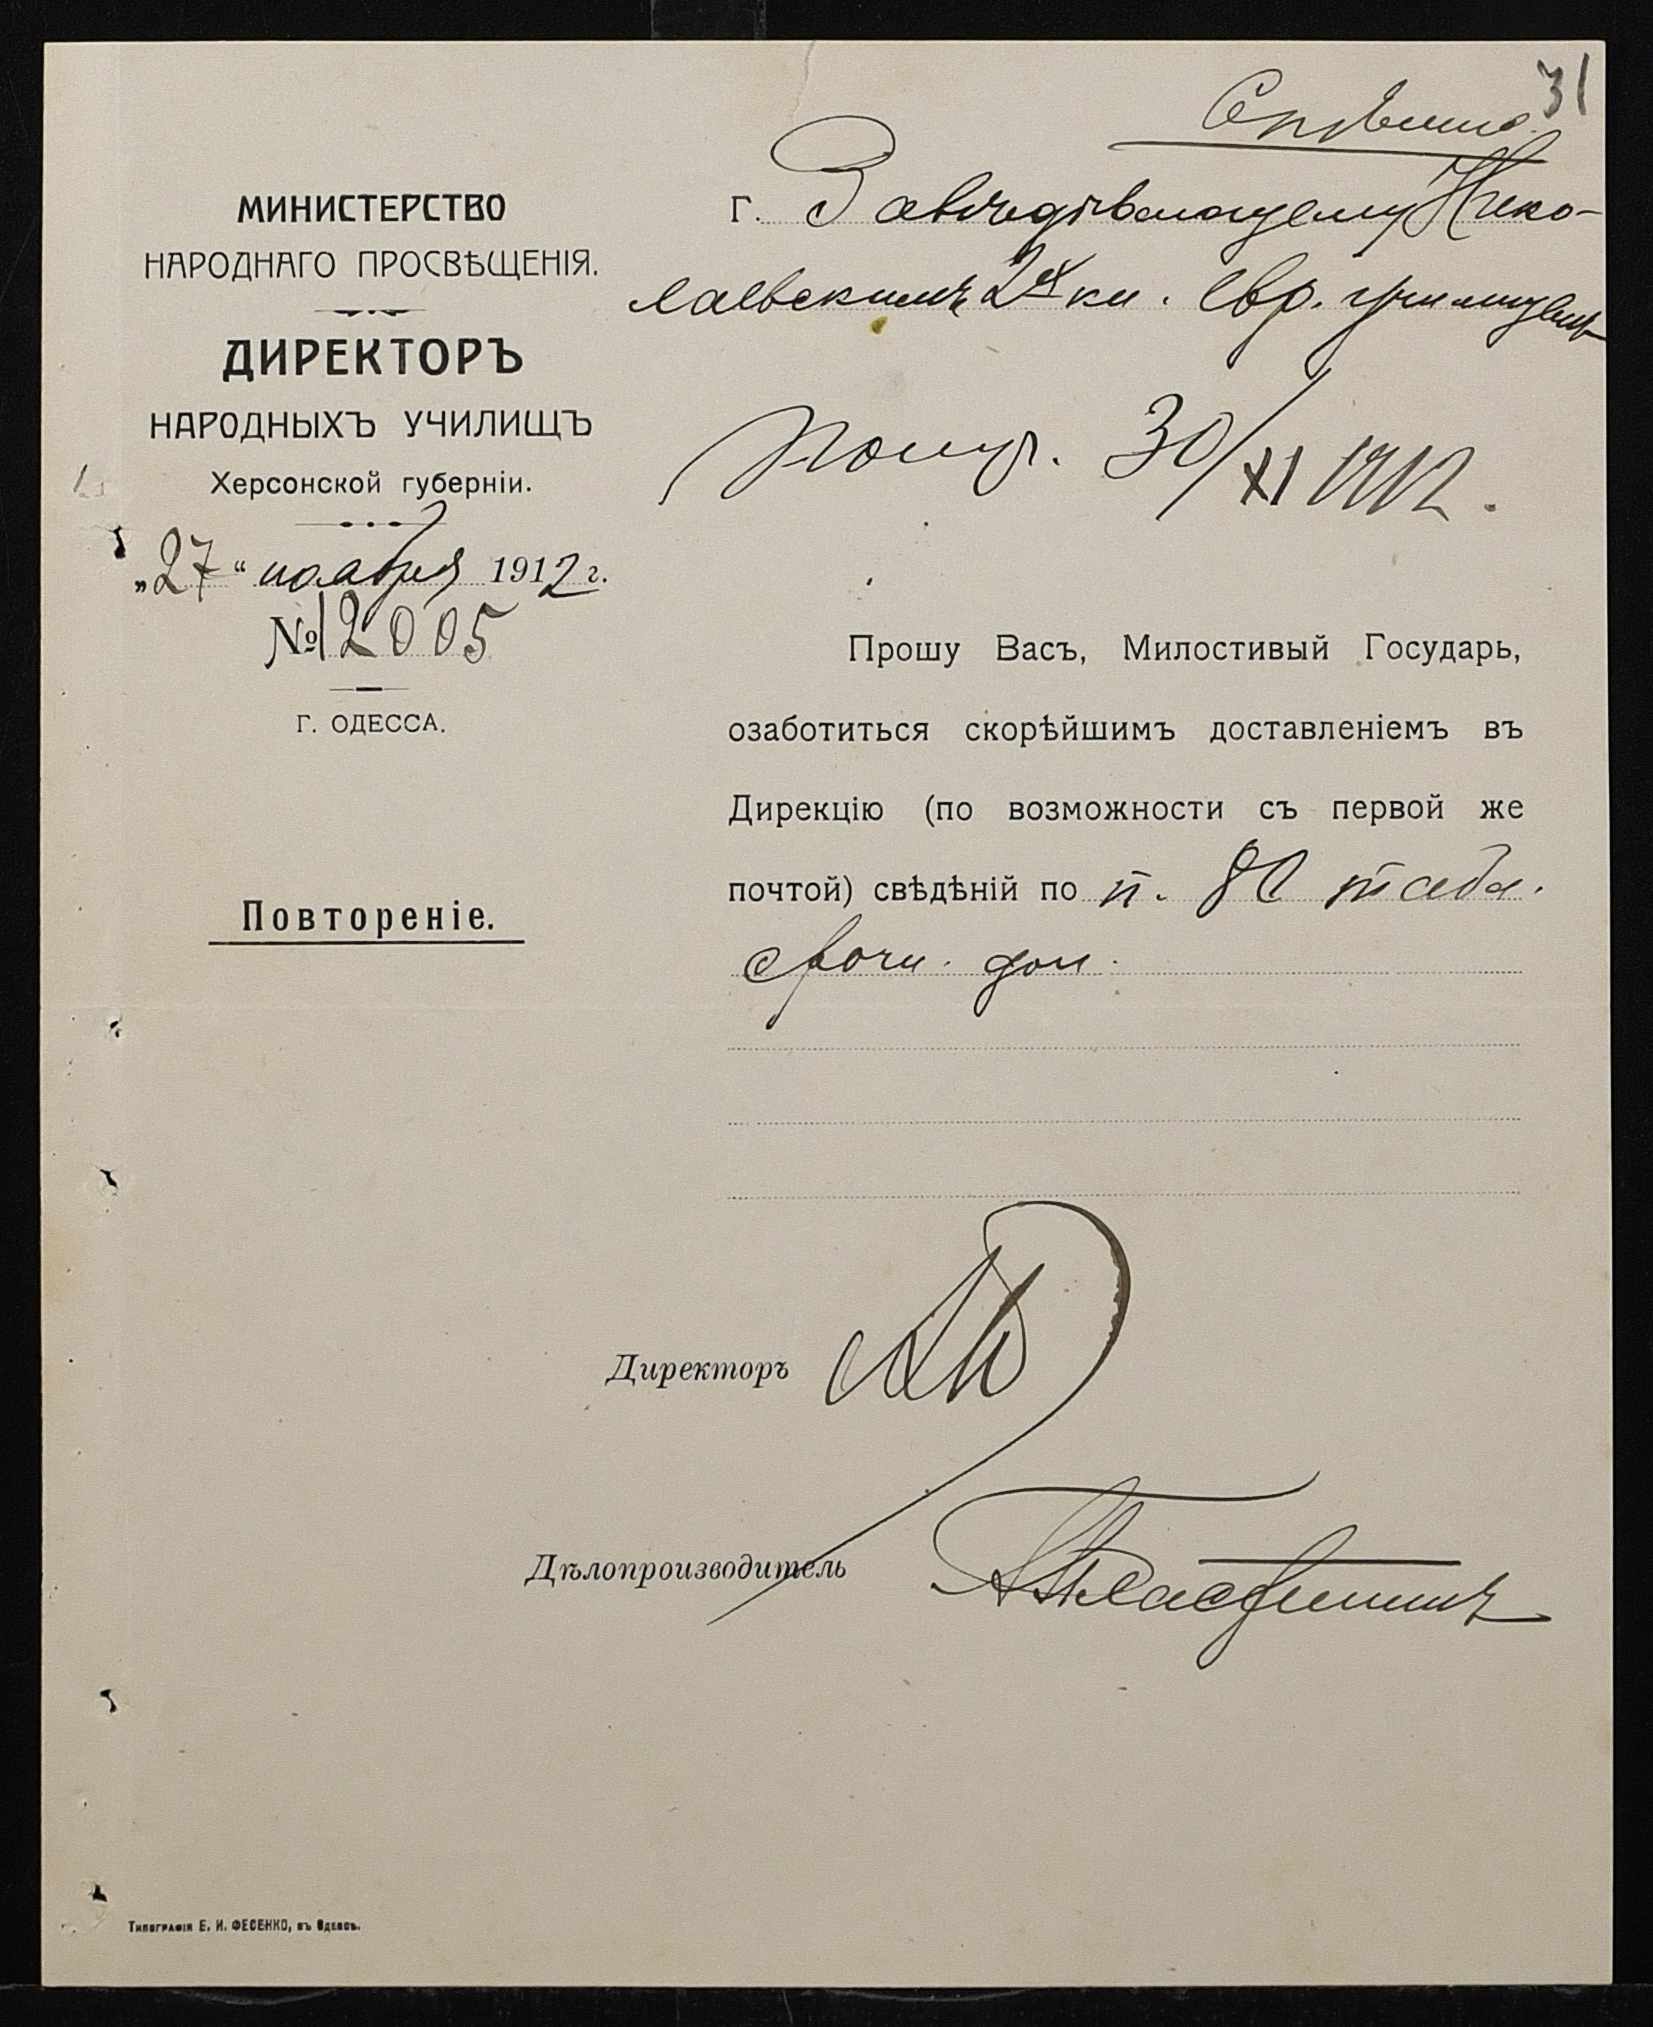 31
Спѣшно.
МИНИСТЕРСТВО
НАРОДНАГО ПРОСВѢЩЕНІЯ.
ДИРЕКТОРЪ
НАРОДНЫХЪ УЧИЛИЩЪ
Херсонской губерніи.
„27“ ноября 1912 г.
№ 12005
Г. ОДЕССА.
Повтореніе.
Г. Завѣдывающему Нико-
лаевскимъ 2х кл. евр. училищемъ
Получ. 30/XI 1912.
Прошу Васъ, Милостивый Государь,
озаботиться скорѣйшимъ доставленіемъ въ
Дирекцію (по возможности съ первой же
почтой) свѣдѣній по п. 80 табл.
срочн. дон.
Директоръ
Дѣлопроизводитель
Типографія Е. И. ФЕСЕНКО, въ Одессѣ.